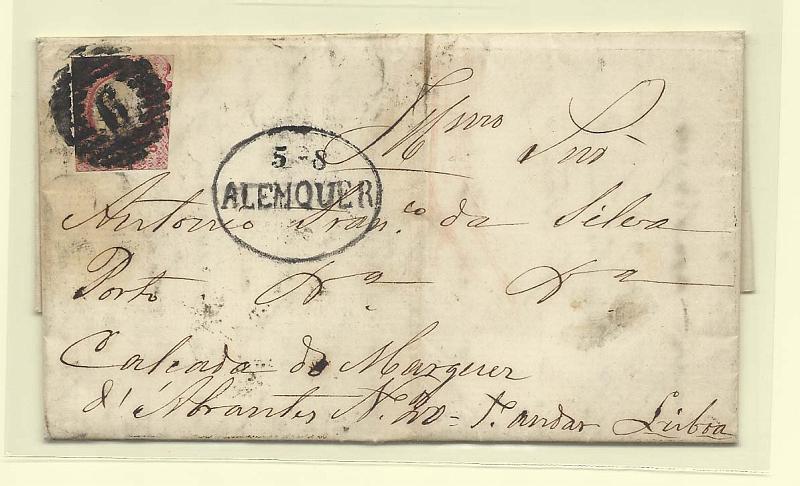 6
5-8
ALEMQUER
Illmo Snr
Antonio Franco da Silva
Porto
Calçada do Marquez
d'Abrantes No 20 = 1o andar Lisboa